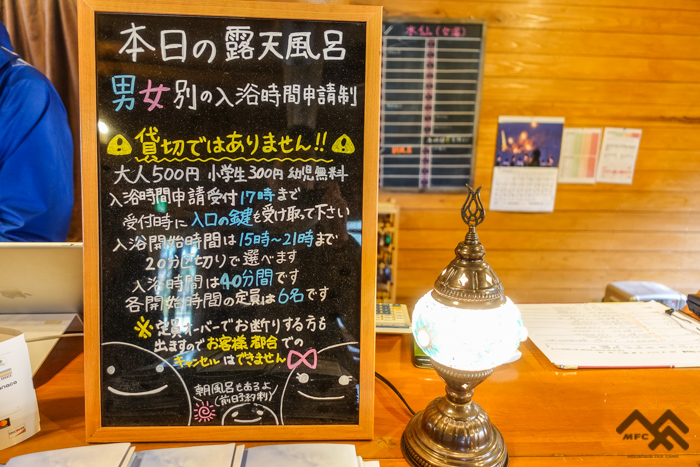 本日の露天風呂
男女別の入浴時間申請制
貸切ではありません!!
大人500円 小学生300円 幼児無料
入浴時間申請受付17時まで
受付時に入口の鍵も受け取って下さい
入浴開始時間は15時〜21時まで
20分区切りで選べます
入浴時間は40分間です
各開始時間の定員は6名です
※定員オーバーでお断りする方も
出ますのでお客様都合での
キャンセルはできません
朝風呂もあるよ
(前日予約制)
MFC